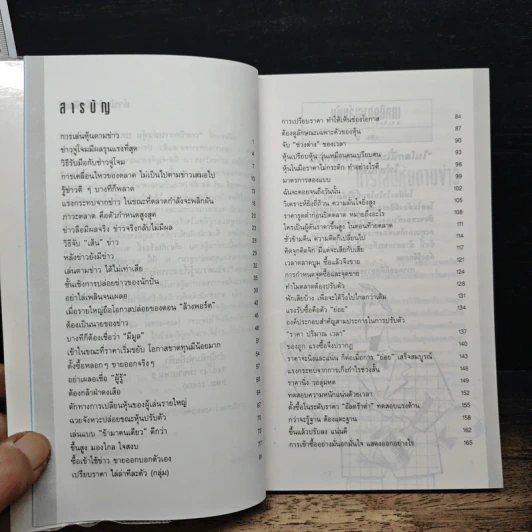 สารบัญ
การเล่นหุ้นตามข่าว
ข่าวจู่โจมมีผลรุนแรงที่สุด
วิธีรับมือกับข่าวจู่โจม
การเคลื่อนไหวของตลาด ไม่เป็นไปตามข่าวเสมอไป
รู้ข่าวดี ๆ บางทีก็พลาด
แรงกระทบจากข่าว ในขณะที่ตลาดกำลังจะพลิกผัน
ภาวะตลาด คือตัวกำหนดสูงสุด
ข่าวลือมีผลจริง ข่าวจริงกลับไม่มีผล
วิธีจับ "เส้น" ข่าว
หลังข่าวยังมีข่าว
เล่นตามข่าว ได้ไม่เท่าเสีย
ชั้นเชิงการปล่อยข่าวของนักปั่น
อย่าใส่เพลินจนเผลอ
เมื่อรายใหญ่ถือโอกาสปล่อยของตอน "ล้างพอร์ต"
ต้องเป็นนายของข่าว
บางทีก็ต้องเชื่อว่า "มีมูล"
เข้าในขณะที่ราคาเริ่มขยับ โอกาสขาดทุนมีน้อยมาก
ตั้งซื้อหลอกๆ ขายออกจริงๆ
อย่าเผลอเชื่อ "ผู้รู้"
ต้องกล้าฝ่าดงเสือ
ดักทางการเปลี่ยนหุ้นของผู้เล่นรายใหญ่
ฉวยจังหวะปล่อยของขณะหุ้นปรับตัว
เล่นแบบ "ข้ามาคนเดียว" ดีกว่า
ขึ้นสูง มองไกล ใจสงบ
ซื้อเข้าใช้ข่าว ขายออกบอกตัวเอง
เปรียบราคา ไล่ล่าทีละตัว (กลุ่ม)
การเปรียบราคา ทำให้เห็นช่องโอกาส 84
ต้องดูลักษณะเฉพาะตัวของหุ้น 87
จับ "ช่วงต่าง" ของเวลา 90
หุ้นเปรียบหุ้น วุ่นเหมือนคนเปรียบคน 93
หุ้นในมือราคาไม่กระดิก ทำอย่างไรดี 96
มาตรการสองแบบ 99
ฉันจะคอยจนถึงวันนั้น 102
วิเคราะห์ยิ่งถี่ถ้วน ความมั่นใจยิ่งสูง 105
ราคารูดต่ำก่อนปิดตลาด หมายถึงอะไร 108
ใครเป็นผู้ดันราคาขึ้นสูง ในตอนท้ายตลาด 111
ชั่วข้ามคืน ความคิดก็เปลี่ยนไป 114
คิดจุกคิดจิก มีแต่จะเสียกับเสีย 118
เวลาตลาดบูม ซื้อแล้วจึงขาย 121
การกำหนดจุดซื้อและจุดขาย 124
ทำไมตลาดต้องปรับตัว 128
พักเสียบ้าง เพื่อจะได้วิ่งไปไกลกว่าเดิม 131
แรงรับซื้อคือตัว "ย่อย" 134
องค์ประกอบสำคัญสามประการในการปรับตัว
"ราคา ปริมาณ เวลา" 137
ของถูก แรงซื้อจึงปรากฏ 140
ราคาจะนิ่งและแน่น ก็ต่อเมื่อการ "ย่อย" เสร็จสมบูรณ์ 143
แรงกระทบจากการเก็งกำไรช่วงสั้น 146
ราคานิ่ง วอลุ่มหด 149
ทดสอบความหนักแน่นด้วยเวลา 152
ตั้งซื้อในระดับราคา "อัลตร้าต่ำ" ทดสอบแรงต้าน 155
กว่าจะรู้ฐาน ต้องแตะฐาน 158
ขึ้นแล้วปรับลง แน่นดี 162
การเข้าซื้ออย่างมั่นอกมั่นใจ แสดงออกอย่างไร 165